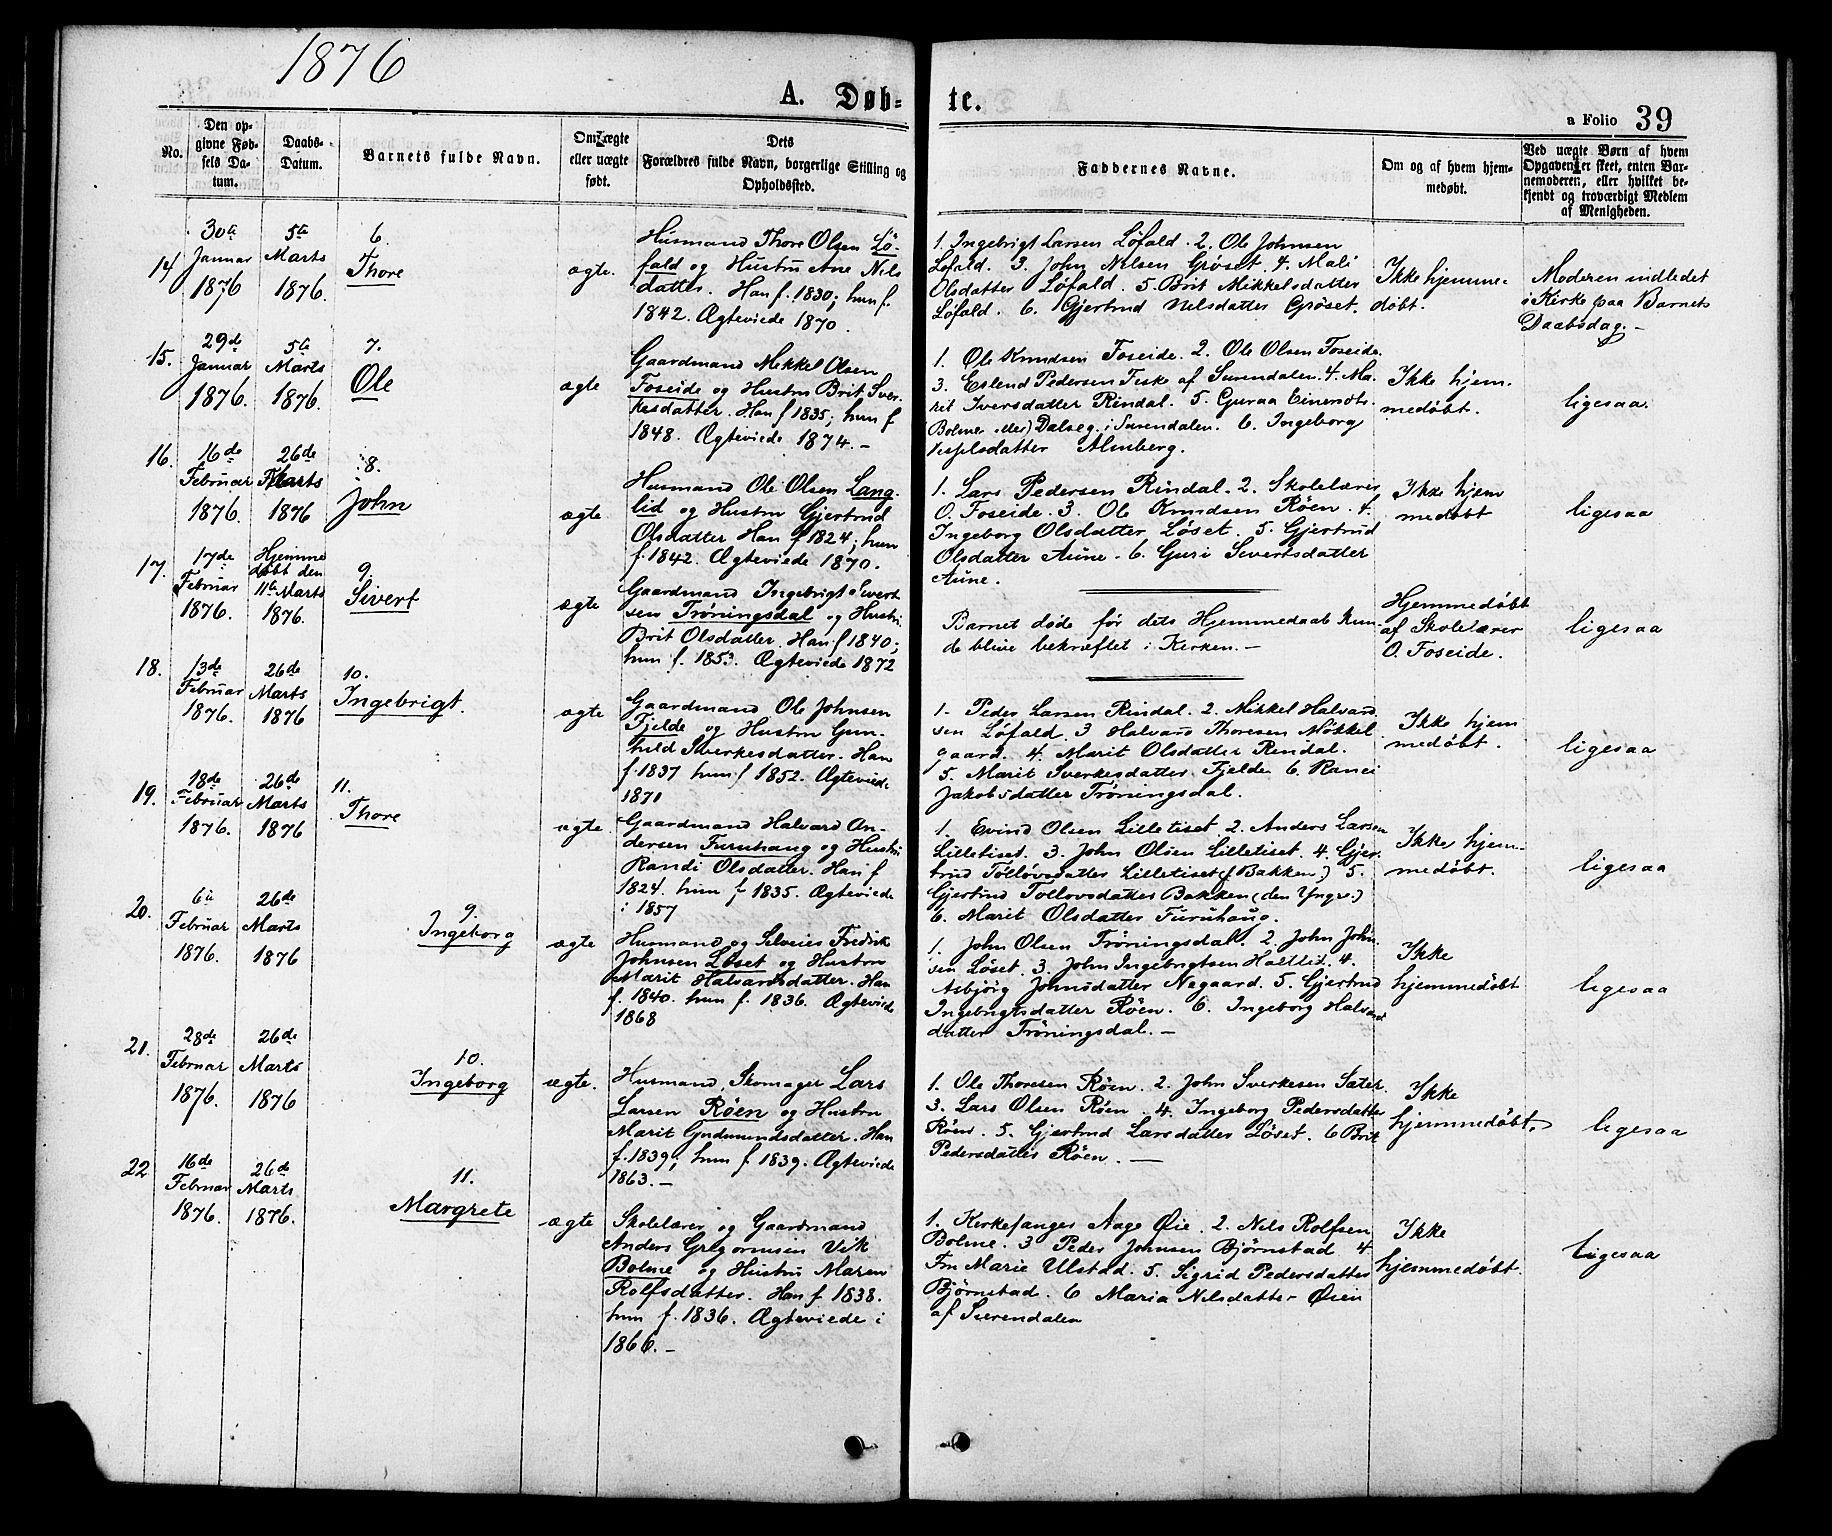 1876
A. Døb-
te.
a Folio 39
No.
Den op-
givne Fød-
sels Da-
tum.
Daabs-
Datum.
Barnets fulde Navn.
Om ægte
eller uægte
født.
Dets
Forældres fulde Navn, borgerlige Stilling og
Opholdssted.
Faddernes Navne.
Om og af hvem hjem-
medøbt.
Ved uægte Børn af hvem
Opgaven er skeet, enten Bar-
nemoderen, eller hvilket be-
kjendt og troværdigt Medlem
af Menigheden.
14
30te
Januar
1876
5te
Marts
1876.
6.
Thore
ægte.
Husmand Thore Olsen Lø-
fald og Hustru Ane Nils
datter. Han f. 1830; hun f.
1842. Ægteviede 1870.
1. Ingebrigt Larsen Løfald. 2. Ole Johnsen
Løfald. 3. John Nilsen Grøset. 4. Mali
Olsdatter Løfald. 5. Brit Mikkelsdatter
Løfald. 6. Gjertrud Nelsdatter Grøset.
Ikke hjemme-
døbt.
Moderen indledet
i Kirke paa Barnets
Daabsdag.-
15.
29de
Januar
1876.
5te
Marts
1876.
7.
Ole
ægte
Gaardmand Mekkel Olsen
Foseide og Hustru Brit Sver-
kesdatter. Han f 1835; hun f
1848. Ægteviede 1874.-
1. Ole Knudsen Foseide. 2. Ole Olsen Foseide.
3. Eslend Pedersen Fiske af Surendalen. 4. Ma-
rit Iversdatter Rindal. 5. Guraa Einendts.
Bolme Dalseg. i Surendalen. 6. Ingeborg
datter Almberg.
Ikke hjem-
medøbt.
ligesaa.
16.
16de
Februar
1876.
26de
Marts
1876
8.
John
ægte
Husmand Ole Olsen Lang-
lid og Hustru Gjertrud
Olsdatter Han f 1824; hun
f. 1842. Ægteviede 1870.
1. Lars Pedersen Rindal. 2. Skolelærer
O. Foseide. 3. Ole Knudsen Røen. 4.
Ingeborg Olsdatter Løset. 5. Gjertrud
Olsdatter Aune. 6. Guri Sivertsdatter
Aune.
Ikke hjem
medøbt
ligesaa
17.
17de
Februar
1876.
Hjemme
døbt den
11te Marts
1876.
9.
Sivert
ægte
Gaardmand Ingebrigt Sivert
sen Trøningsdal og Hustru
Brit Olsdatter. Han f 1840;
hun f. 1853. Ægteviede 1872
Barnet døde før dets Hjemmedaab kun-
de blive bekræftet i Kirken.-
Hjemmedøbt
af Skolelærer
O. Foseide.
ligesaa
18.
13de
Februar
1876.
26de
Marts
1876
10.
Ingebrigt.
ægte
Gaardmand Ole Johnsen
Fjelde og Hustru Gun-
hild Sverkesdatter. Han
f. 1837 hun f 1852. Ægteviede
1871
1. Peder Larsen Rindal. 2. Mikkel Halvard
sen Løfald. 3 Halvard Thoresen Møkkel
gaard. 4. Marit Olsdatter Rindal.
5. Marit Sverkesdatter Fjelde 6. Ranei
Jakobsdatter Trøningsdal.
Ikke hjem
medøbt.
ligesaa
19.
18de
Februar
1876.
26de
Marts
1876
11.
Thore
ægte.
Gaardmand Halvard An-
dersen Furuhaug og Hustru
Randi Olsdatter. Han f
1824. hun f 1835. Ægteviede
i 1857
1. Evind Olsen Lilletiset. 2. Anders Larsen
Lilletiset. 3. John Olsen Lilletiset. 4. Gjer-
trud Tolløvsdatter Lilletiset (f Bakken) 5.
Gjertrud Tollovsdatter Bakken (den Yngre.)
6. Marit Olsdatter Furuhaug.
Ikke hjem-
medøbt.
ligesaa
20.
6te
Februar
1876.
26de
Marts
1876
9.
Ingeborg
ægte
Husmand og Selveier Fredrik
Johnsen Løset og Hustru
Marit Halvardsdatter. Han
f. 1840. hun f. 1836. Ægteviede
1868
1. John Olsen Trøningsdal. 2. John John-
sen Løset. 3. John Ingebrigtsen Haltlid. 4.
Asbjørg Johnsdatter Negaard. 5. Gjertrud
Ingebrigtsdatter Røen. 6. Ingeborg Halvard
datter Trøningsdal.-
Ikke
hjemmedøbt
ligesaa
21.
28de
Februar
1876.
26de
Marts
1876
10.
Ingeborg
ægte.
Husmand, Skomager Lars
Larsen Røen og Hustru
Marit Gudmundsdatter. Han
f. 1839; hun f 1839. Ægteviede
1863.-
1. Ole Thoresen Røen. 2. John Sverkesen Sæter.
3. Lars Olsen Røen. 4. Ingeborg Pedersdatter
Røen. 5. Gjertrud Larsdatter Løset. 6 Brit
Pedersdatter Røen.-
Ikke
hjemmedøbt.
ligesaa
22
16de
Februar
1876.
26de
Marts
1876.
11.
Margrete
ægte
Skolelærer og Gaardmand
Anders Gregoriusen Vik
Bolme og Hustru Maren
Rolfsdatter. Han f 1838.
hun f. 1836. Ægteviede i
1866.-
1. Kirkesanger Aage Øie. 2. Nils Rolfsen
Bolme. 3 Peder Johnsen Bjørnstad 4
Fru Marie Ulstad. 5. Sigrid Pedersdatter
Bjørnstad. 6 Maria Nilsdatter Øien
af Surendalen
Ikke
hjemmedøbt.
Ligesaa